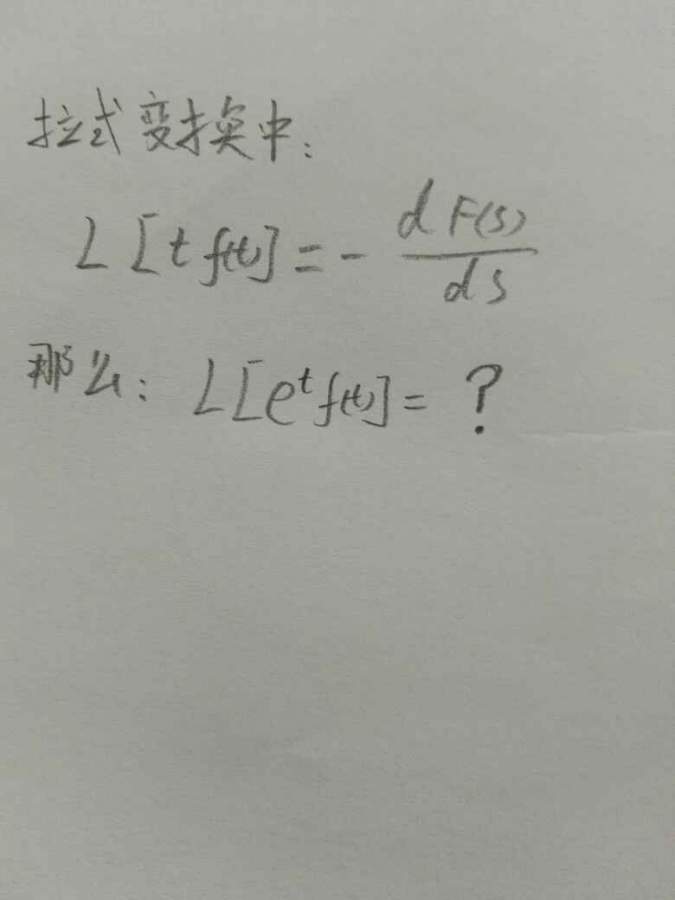 拉式变换中:
L[tf(t)]=-dF(s)/ds
那么:L[e^t f(t)]=?